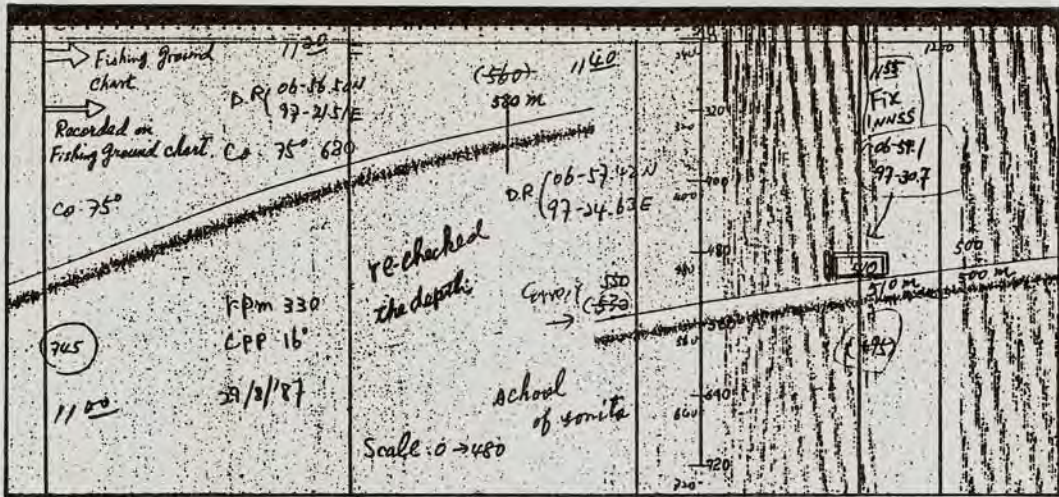 Fishing ground
chart
Recorded on
Fishing ground chart.
Co 75°
745
1100
1120
D.R (06-56.50N
97-21.51E
Co 75° 620
rpm 330
CPP 16°
29/8/'87
(560)
580 m
1140
D.R (06-57.42N
97-24.63E
re-checked
the depth.
550
(530)
school
of
Scale: 0→480
320
400
400
480
560
640
720
720
1200
NSS
Fix
NNSS
06-59.1
97-30.7
510
510 m
500
500 m
(495)